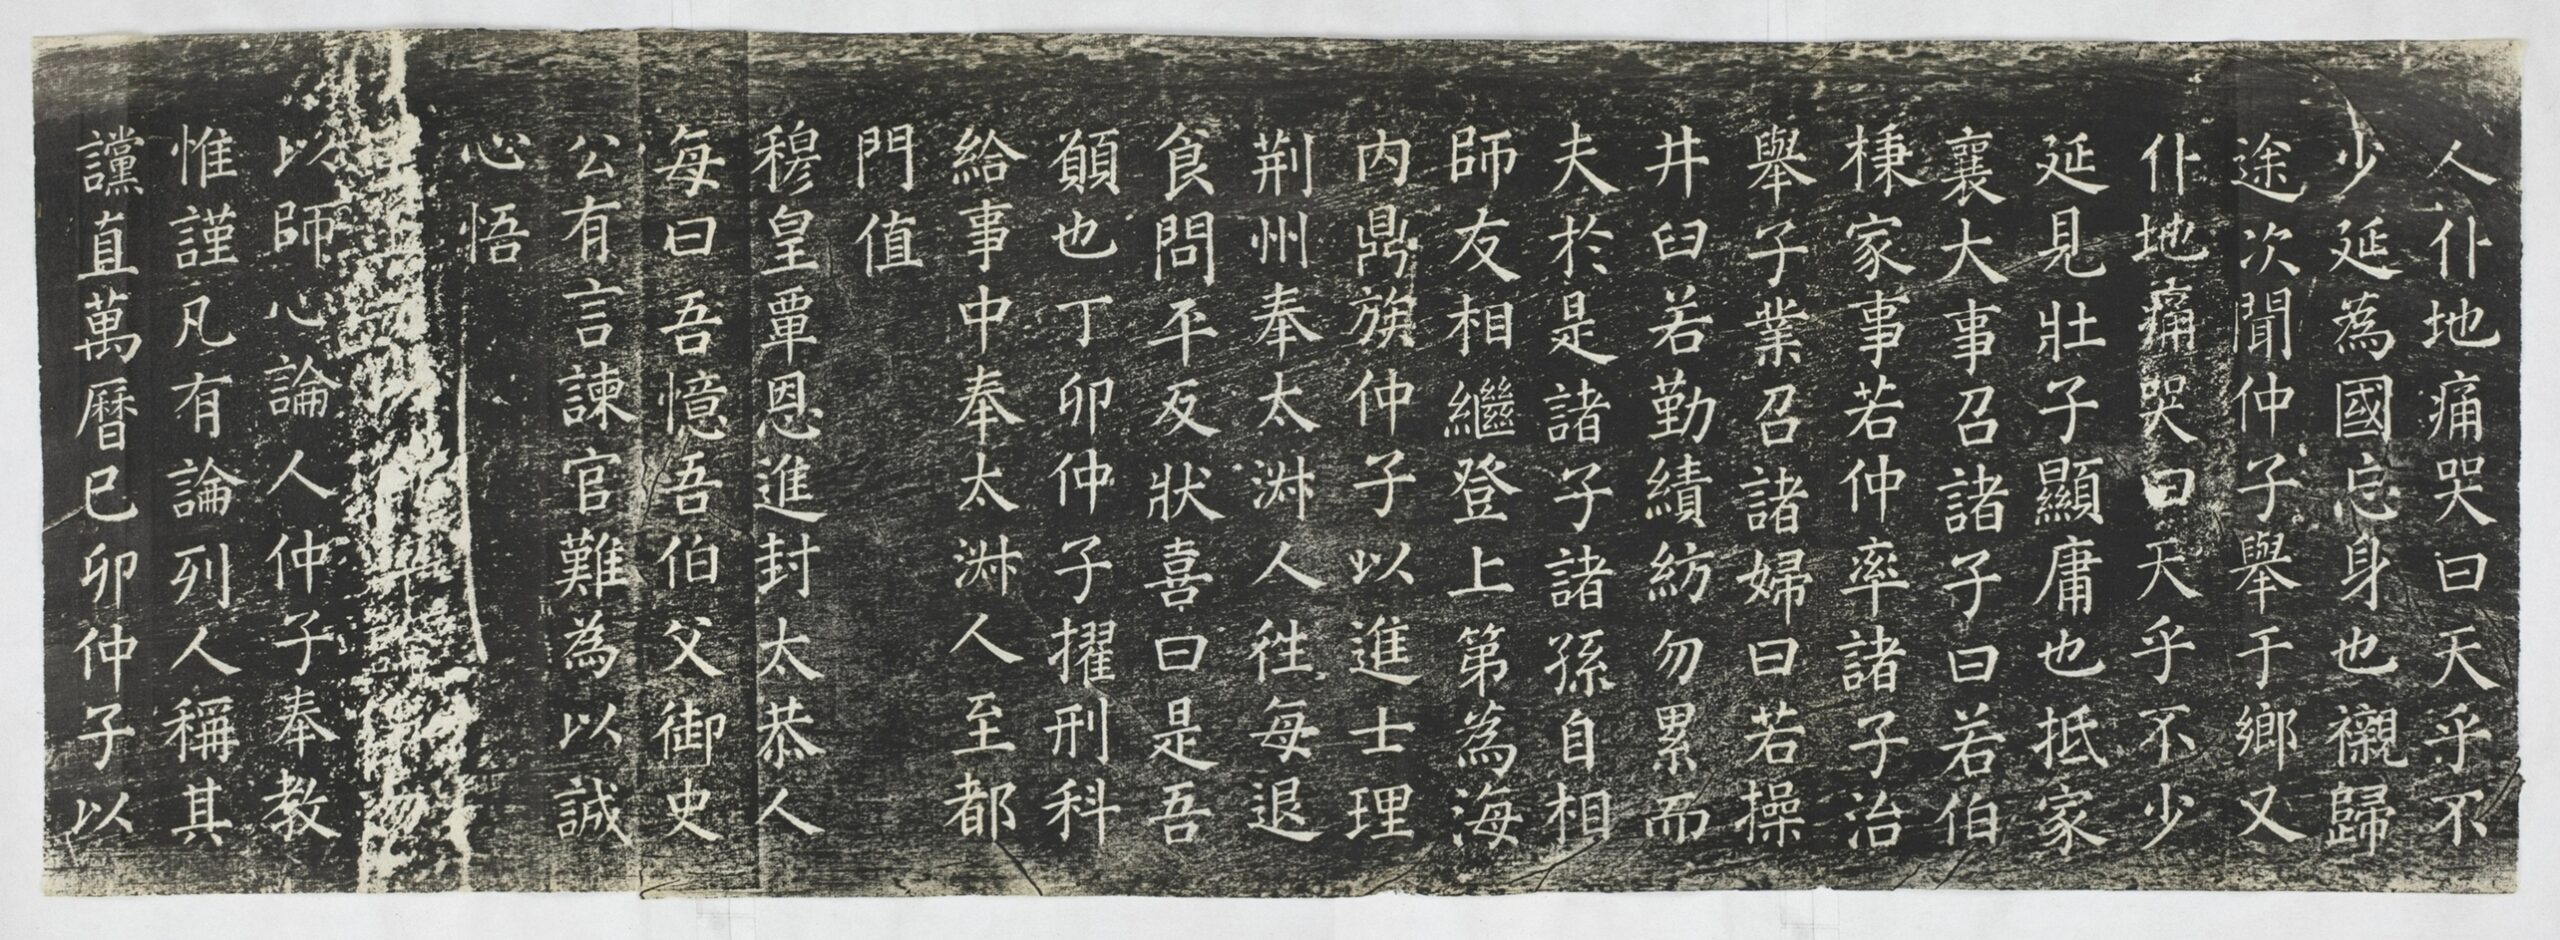 人仆地痛哭曰天乎不
少延為國忘身也襯歸
途次聞仲子舉于鄉又
仆地痛哭曰天乎不少
延見壯子顯庸也抵家
襄大事召諸子曰若伯
秉家事若仲率諸子治
舉子業召諸婦曰若操
井臼若勤績紡勿累而
夫於是諸子諸孫自相
師友相繼登上第為海
內鼎族仲子以進士理
荆州奉太淑人徃每退
食問平反狀喜曰是吾
願也丁卯仲子擢刑科
給事中奉太淑人至都
門值
穆皇覃恩進封太恭人
每曰吾憶吾伯父御史
公有言諫官難為以誠
心悟
以師心論人仲子奉教
惟謹凡有論列人稱其
讜直萬曆己卯仲子以